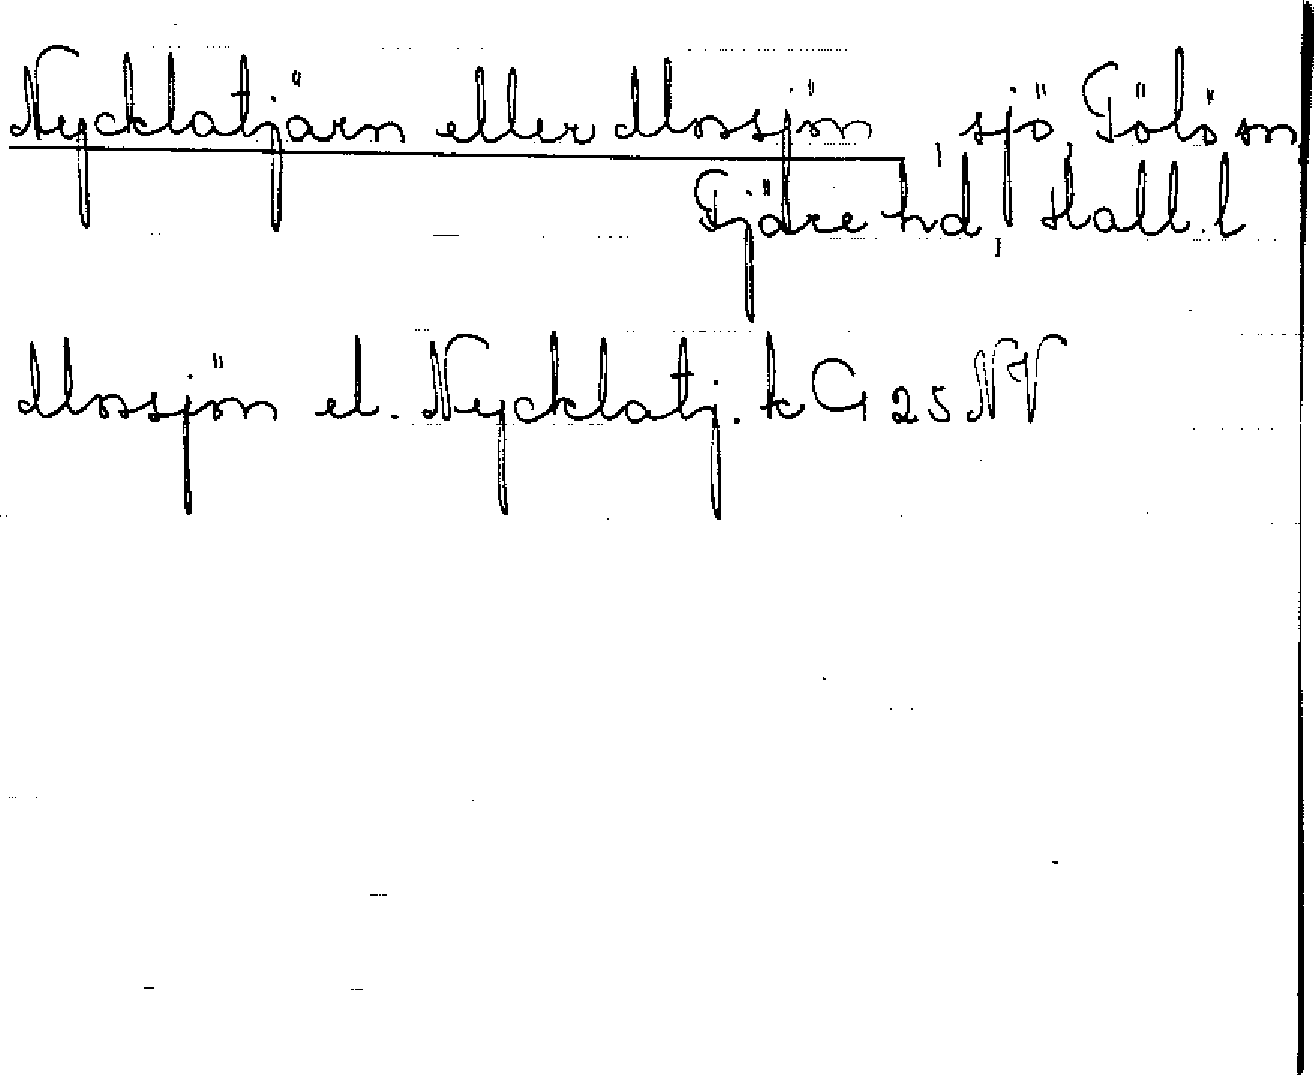 Nycklatjärn eller Mossjön, sjö, Tölö sn
Fjäre hd, Hall. l
Mossjön el. Nycklatj. k G 25 NV